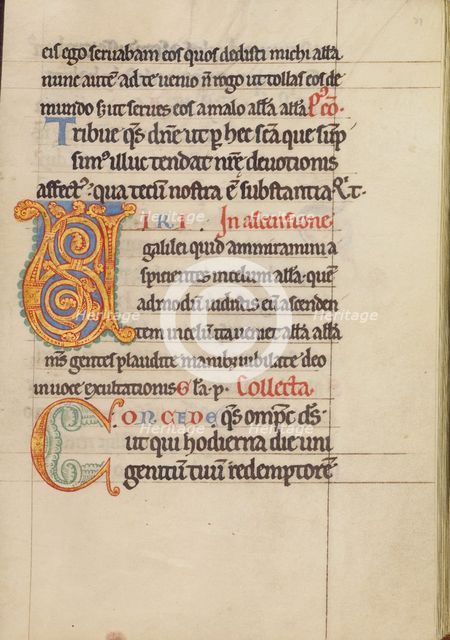 eis ego seruabam eos quos dedisti michi alła
nunc autē ad te uenio n̄ rogo ut tollas eos de
mundo s; ut serues eos a malo alła alła. P̓ cō.
Tribue q̄s dn̄e ut per hec sc̄a que sūp
simꝰ illuc tendat nr̄e deuotionis
affectꝰ: qua tecū nostra ē substantia. P̓t.
VIRI. In ascensione
galilei quid ammiramini a
spicientes in celum alła. quē
admodū uidistis eū ascenden
tem in celū ita ueniet alła alła
Om̄s gentes plaudite manibꝫ iubilate deo
in uoce exultationis. Gła. p. Collecta.
CONCEDE q̄s omp̄c d̄s.
ut qui hodierna die uni
genitū tuū redemptorē
Heritage
Heritage
Heritage
Heritage
Heritage
Heritage